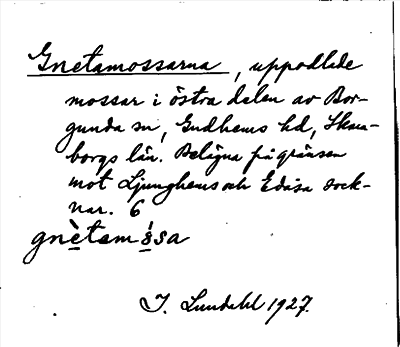 Gnetamossarna, uppodlade
mossar i östra delen av Bor-
gunda sn, Gudhems hd, Skara-
borgs län. Belägna på gränsen
mot Ljunghems och Edåsa sock-
nar. 6
gnètamo̊ssa
I. Lundahl 1927.